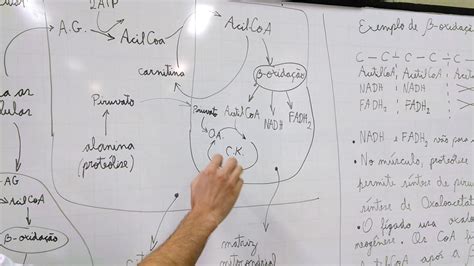 2ATP
A.G.
AcilCoa
AcilCoA
carnitina
β-oxidação
Piruvato
Piruvato
AcetilCoA
NADH
FADH2
OA
C.K.
alanina
(proteólise)
AG
AcilCoA
β-oxidação
matriz
mitocondrial
Exemplo de β-oxidaçã
C-C-C-C-C
AcetilCoA AcetilCoA Acet
NADH NADH
FADH2 FADH2
• NADH e FADH2 vão para
• No músculo, proteólise
permite síntese de piru
síntese de Oxaloacetat
• O fígado usa oxaloa
neogênese. Os CoA f